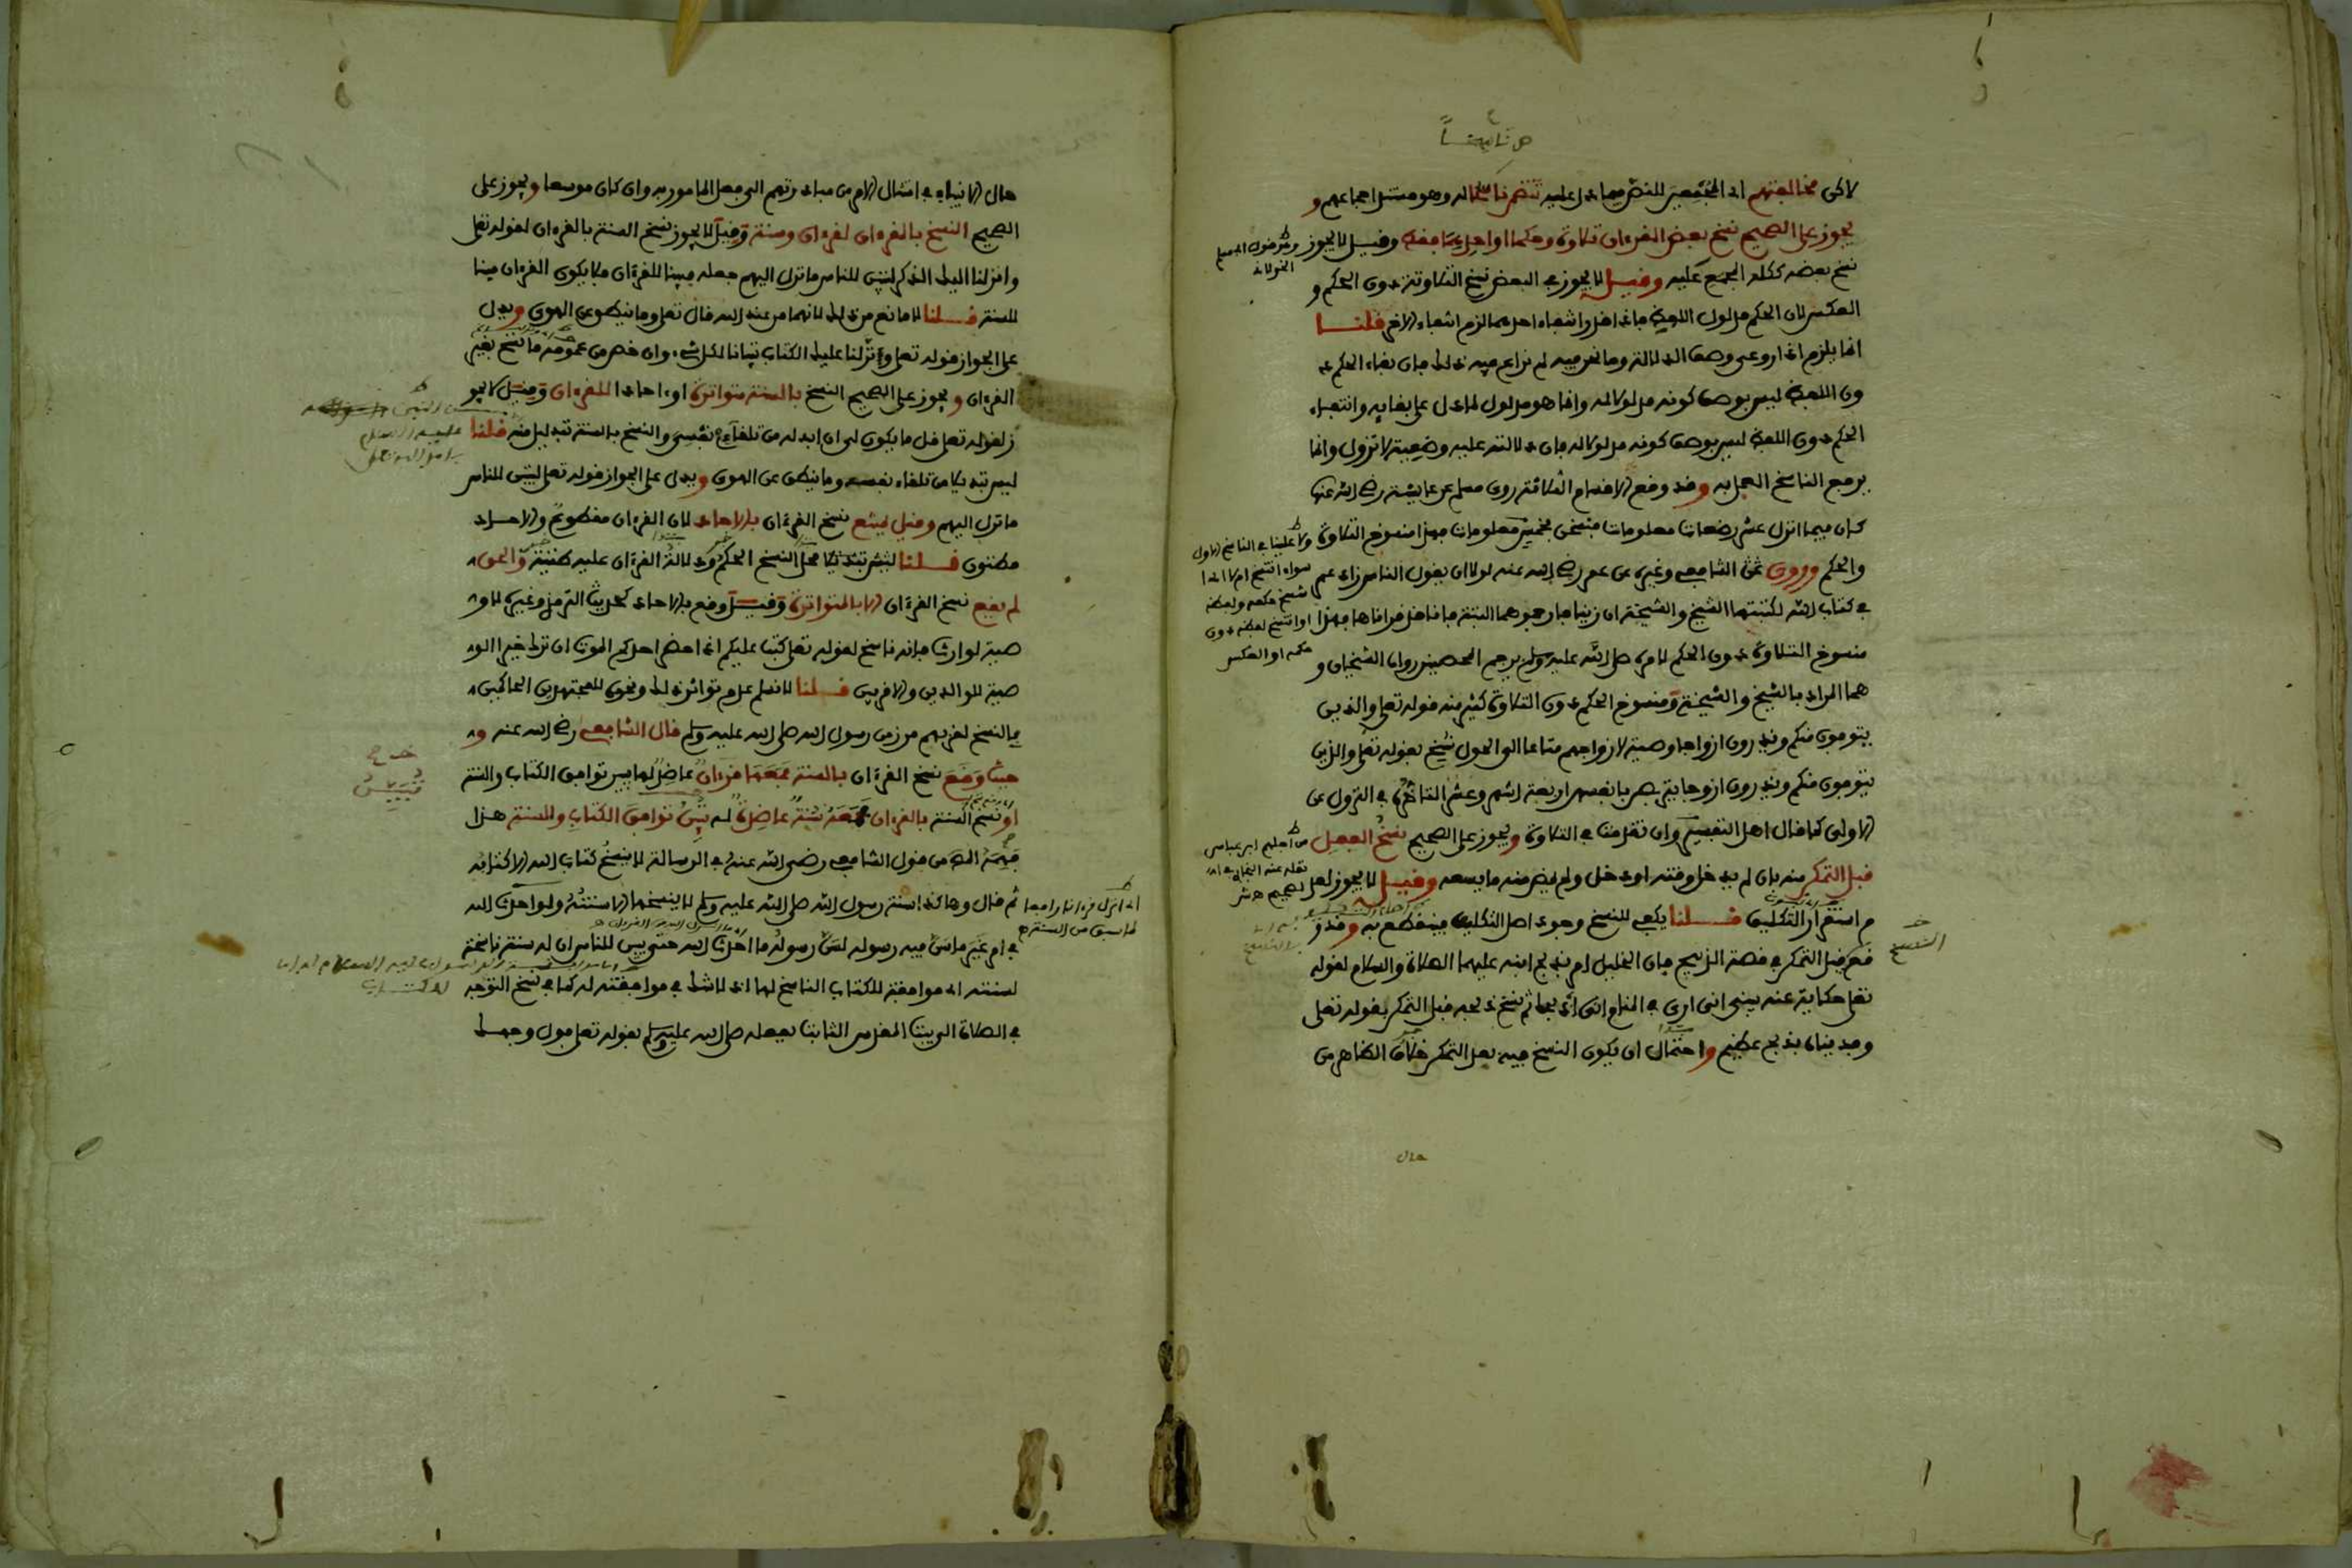 لاكن مخالفتهم اي المجمعين للنص فيما دل عليه تتضمن ناسخا له وهو مستند اجماعهم و
يجوز على الصحيح نسخ بعض القرءان تلاوة وحكما او احدهما فقط وقيل لا يجوز
نسخ بعضه ككله المجمع عليه وقيل لا يجوز في البعض نسخ التلاوة دون الحكم و
العكس لان الحكم مدلول اللفظ فاذا قدر انتفاء احدهما لزم انتفاء الاخر قلنا
انما يلزم اذا روعي وصف الدلالة وما نحن فيه لم يراع فيه ذلك فان بقاء الحكم د
ون اللفظ ليس بوصف كونه مدلولا له وانما هو مدلول لما دل على بقايه وانتفاء
الحكم دون اللفظ ليس بوصف كونه مدلولا له فان دلالته عليه وضعية لا تزول وانما
يرفع الناسخ العمل به وقد وقع الاقسام الثلاثة روى مسلم عن عايشة رضي الله عنها
كان فيما انزل عشر رضعات معلومات فنسخن بخمس معلومات فهذا منسوخ التلاوة
والحكم وروى الشافعي وغيره عن عمر رضي الله عنه لولا ان يقول الناس زاد عمر
في كتاب الله لكتبتها الشيخ والشيخة اذا زنيا فارجموهما البتة فانا قد قراناها فهذا
منسوخ التلاوة دون الحكم لامره صلى الله عليه وسلم برجم المحصنين رواه الشيخان و
هما المراد بالشيخ والشيخة ومنسوخ الحكم دون التلاوة كثير منه قوله تعلى والذين
يتوفون منكم ويذرون ازواجا وصية لازواجهم متاعا الى الحول نسخ بقوله تعلى والذين
يتوفون منكم ويذرون ازواجا يتربصن بانفسهن اربعة اشهر وعشرا لتاخره في النزول عن
الاولى كما قال اهل التفسير وان تقدمت في التلاوة ويجوز على الصحيح نسخ الفعل
قبل التمكن منه بان لم يدخل وقته او دخل ولم يمض منه ما يسعه وقيل لا يجوز لعد
م استقرار التكليف قلنا يكفي للنسخ وجود اصل التكليف فينقطع به وقد و
قع قبل التمكن في قصة الذبيح فان الخليل امر بذبح ابنه عليهما الصلاة والسلام لقوله
تعلى حكاية عنه يبني اني ارى في المنام اني اذبحك ثم نسخ ذبحه قبل التمكن بقوله تعلى
وفديناه بذبح عظيم واحتمال ان يكون النسخ فيه بعد التمكن خلاف الظاهر من
حال
النسخ
حال الانبياء في امتثال الامر من مبادرتهم الى فعل المامور به وان كان موسعا ويجوز على
الصحيح النسخ بالقرءان لقرءان وسنة وقيل لا يجوز نسخ السنة بالقرءان لقوله تعلى
وانزلنا اليك الذكر لتبين للناس ما نزل اليهم جعله مبينا للقرءان فلا يكون القرءان مبينا
للسنة قلنا لا مانع من ذلك لانهما من عند الله قال تعلى وما ينطق عن الهوى ويدل
على الجواز قوله تعلى ونزلنا عليك الكتاب تبيانا لكل شيء وان خص من عمومه ما نسخ بغير
القرءان ويجوز على الصحيح النسخ بالسنة متواترة او ءاحادا للقرءان وقيل لا يجو
ز لقوله تعلى قل ما يكون لي ان ابدله من تلقاءي نفسي والنسخ بالسنة تبديل منه قلنا
ليس تبديلا من تلقاء نفسه وما ينطق عن الهوى ويدل على الجواز قوله تعلى لتبين للناس
ما نزل اليهم وقيل يمتنع نسخ القرءان بالاحاد لان القرءان مقطوع والاحاد
مظنون قلنا محل النسخ الحكم ودلالة القرءان عليه ظنية والحق
لم يقع نسخ القرءان الا بالمتواترة وقيل وقع بالاحاد كحديث الترمذي وغيره لا و
صية لوارث فانه ناسخ لقوله تعلى كتب عليكم اذا حضر احدكم الموت ان ترك خيرا الو
صية للوالدين والاقربين قلنا لا نسلم عدم تواتر ذلك ونحوه للمجتهدين الحاكمين
بالنسخ لقربهم من زمن رسول الله صلى الله عليه وسلم قال الشافعي رضي الله عنه و
حيث وقع نسخ القرءان بالسنة فمعها قرءان عاضد لها يبين توافق الكتاب والسنة
او نسخ السنة بالقرءان فمعه سنة عاضدة له تبين توافق الكتاب والسنة هذا
فهمه المص من قول الشافعي رضي الله عنه في الرسالة لا ينسخ كتاب الله الا كتابه
ثم قال وهكذا سنة رسول الله صلى الله عليه وسلم لا ينسخها الا سنته ولو احدث الله
في امر غير ما سن فيه رسوله لسن رسوله ما احدث الله حتى يبين للناس ان له سنة ناسخة
لسنته اي موافقة للكتاب الناسخ لها اذ لا شك في موافقته له كما في نسخ التوجه
في الصلاة الى بيت المقدس الثابت بفعله صلى الله عليه وسلم بقوله تعلى فول وجهك